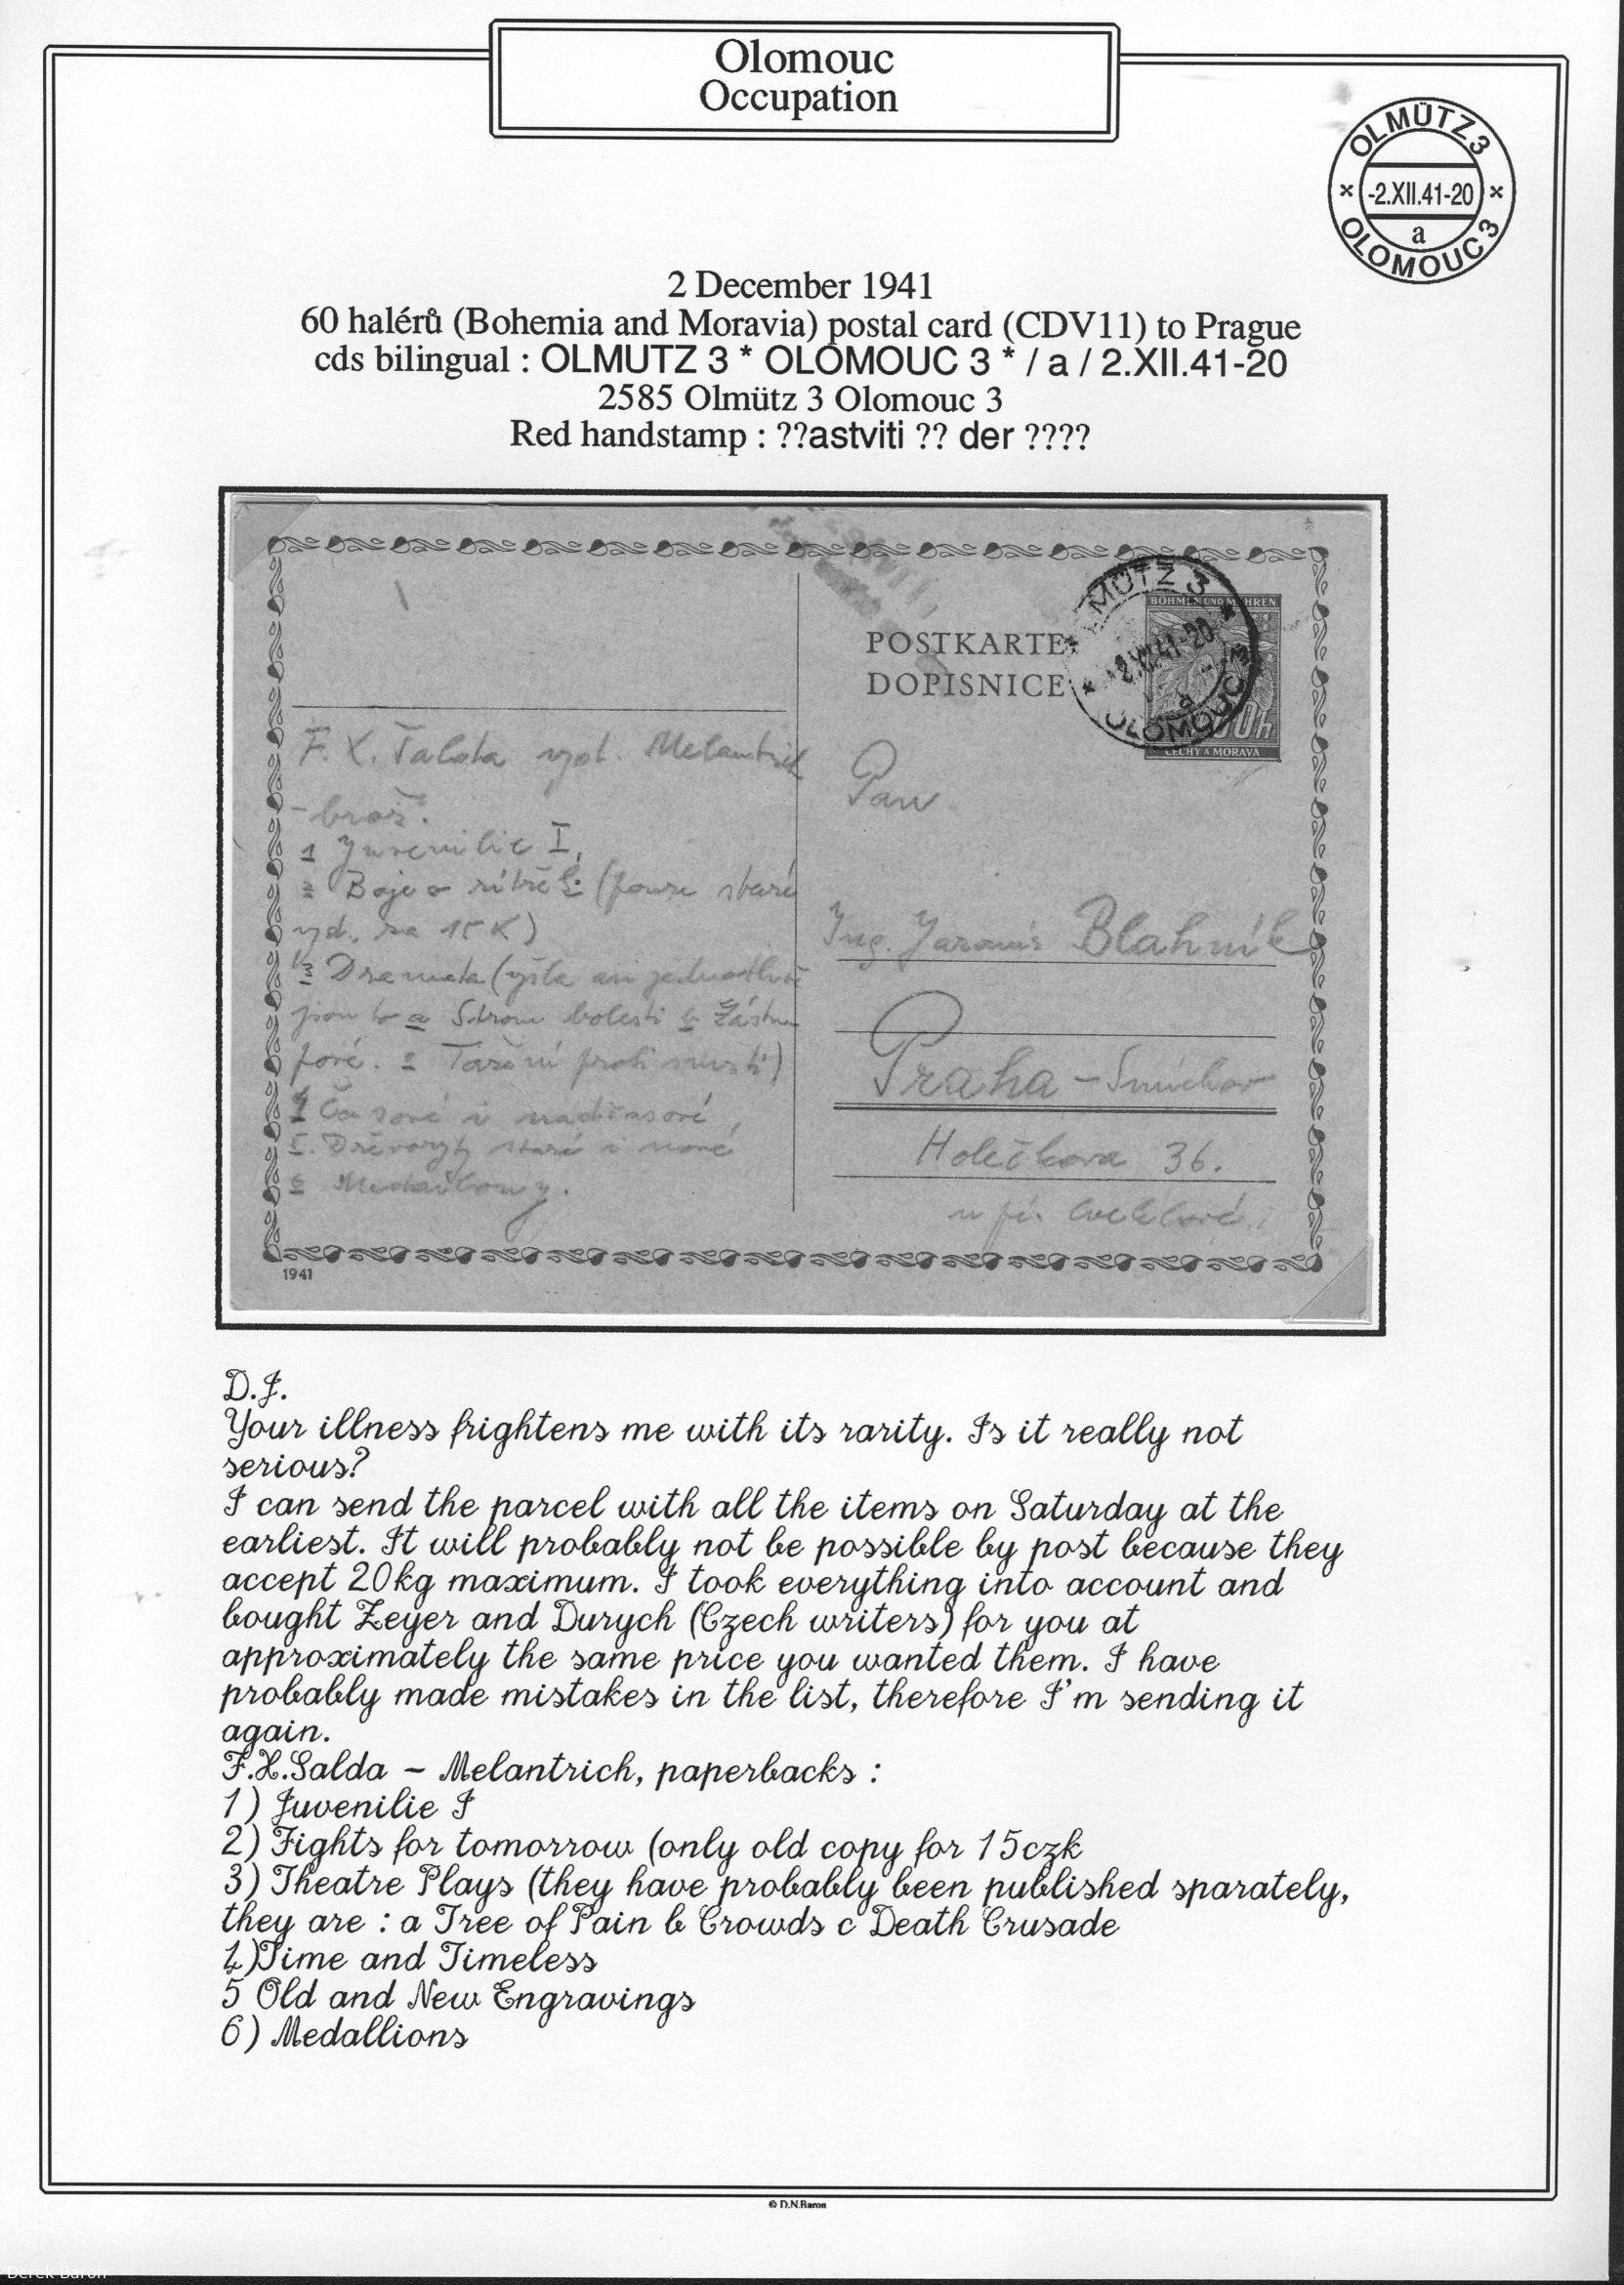 Olomouc
Occupation
OLMÜTZ 3
-2.XII.41-20
a
OLOMOUC 3
2 December 1941
60 halérů (Bohemia and Moravia) postal card (CDV11) to Prague
cds bilingual : OLMUTZ 3 * OLOMOUC 3 * / a / 2.XII.41-20
2585 Olmütz 3 Olomouc 3
Red handstamp : ??astviti ?? der ????
POSTKARTE
DOPISNICE
BÖHMEN UND MÄHREN
ČECHY A MORAVA
MÜTZ 3
OLOMOUC 3
F. X. Šalda vyd. Melantrich
- brož.
1 Juvenilie I,
2 Boje o zítřek (pouze staré
vyd. za 15 K)
3 Dramata (vyšla asi jednotlivě
jsou to a Strom bolesti b Zástu
pové. c Tažení proti smrti)
4 Časové i nadčasové,
5. Dřevoryty staré i nové
6 Medailony.
Pan
Ing. Jaromír Blahník
Praha - Smíchov
Holečkova 36.
1941
D.J.
Your illness frightens me with its rarity. Is it really not
serious?
I can send the parcel with all the items on Saturday at the
earliest. It will probably not be possible by post because they
accept 20kg maximum. I took everything into account and
bought Zeyer and Durych (Czech writers) for you at
approximately the same price you wanted them. I have
probably made mistakes in the list, therefore I'm sending it
again.
F.X.Salda - Melantrich, paperbacks :
1) Juvenilie I
2) Fights for tomorrow (only old copy for 15czk
3) Theatre Plays (they have probably been published sparately,
they are : a Tree of Pain b Crowds c Death Crusade
4)Time and Timeless
5 Old and New Engravings
6) Medallions
© D.N.Baron
Derek Baron